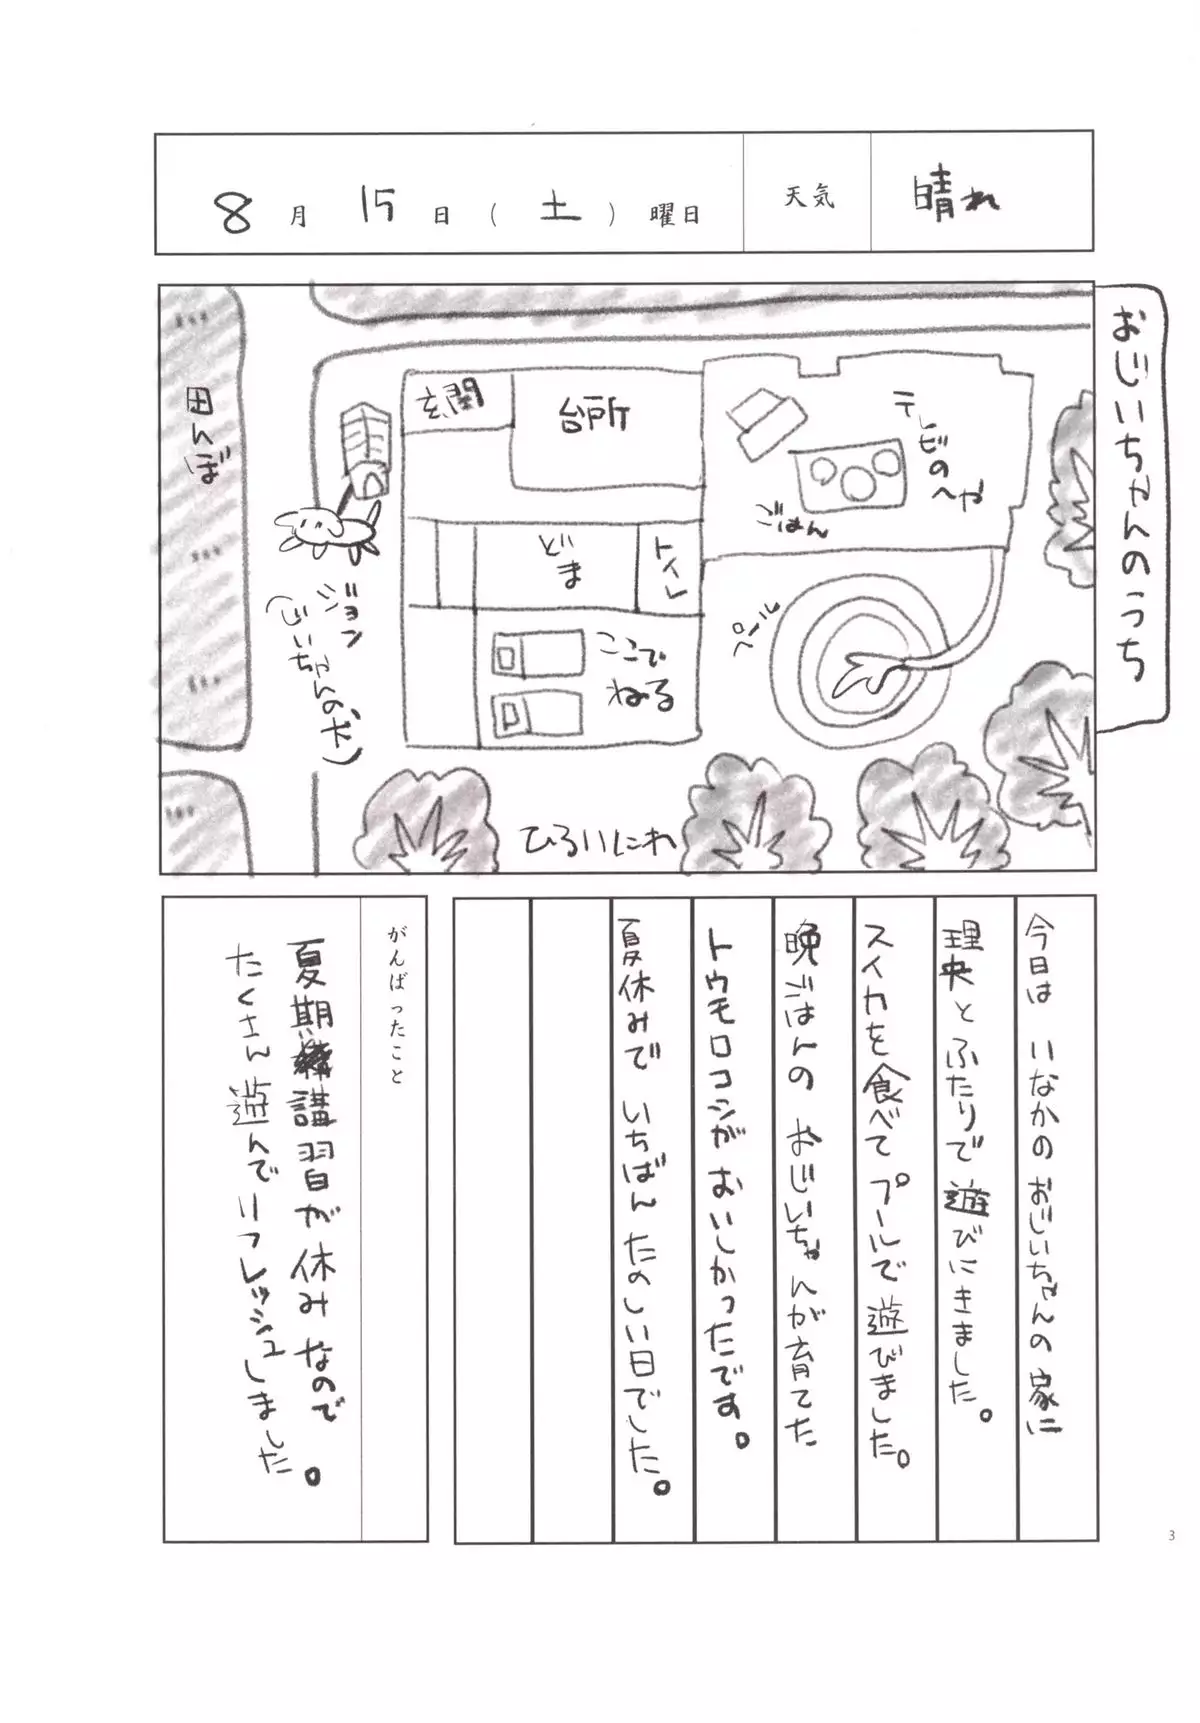 8月15日(土)曜日
天気
晴れ
おじいちゃんのうち
田んぼ
玄関
台所
テレビのへや
ごはん
どま
トイレ
プール
ここで
ねる
ジョン
(じいちゃんの犬)
ひろいにわ
今日は いなかのおじいちゃんの家に
理央とふたりで遊びにきました。
スイカを食べてプールで遊びました。
晩ごはんの おじいちゃんが育てた
トウモロコシが おいしかったです。
夏休みで いちばん たのしい日でした。
がんばったこと
夏期講習が休みなので
たくさん遊んでリフレッシュしました。
3